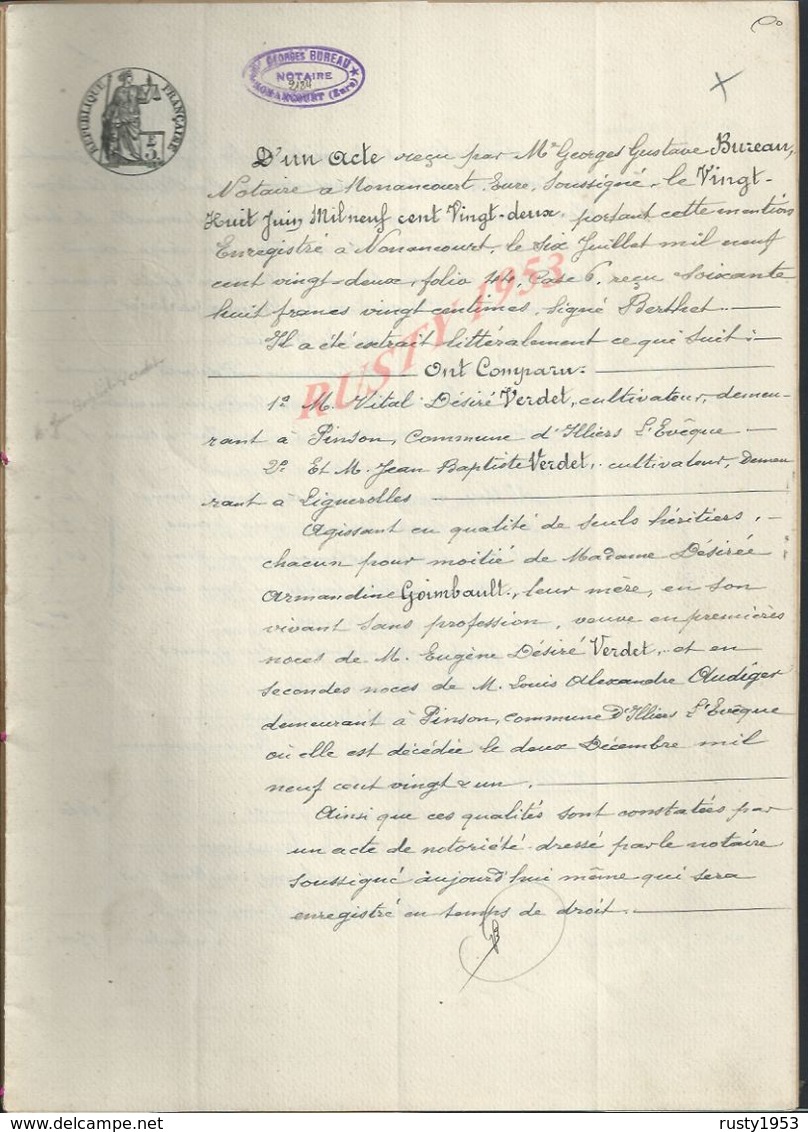 RÉPUBLIQUE FRANÇAISE
3F
GEORGES BUREAU
NOTAIRE
2124
NONANCOURT (Eure)
D'un acte reçu par Me Georges Gustave Bureau,
Notaire à Nonancourt, Eure, soussigné, le Vingt-
Huit Juin Mil neuf cent Vingt-deux, portant cette mention
Enregistré à Nonancourt, le six Juillet mil neuf
cent vingt-deux, folio 44, Case 6, reçu Soixante
huit francs vingt centimes, signé Berthet.
Il a été extrait littéralement ce qui suit :
Ont Comparu :
1° M. Vital Désiré Verdet, cultivateur, demeu-
rant à Pinson, Commune d'Illiers L'Evêque
2° Et M. Jean Baptiste Verdet, cultivateur, demeu
rant à Lignerolles
Agissant en qualité de seuls héritiers,
chacun pour moitié de Madame Désirée
Armandine Goimbault, leur mère, en son
vivant sans profession, veuve en premières
noces de M. Eugène Désiré Verdet, et en
secondes noces de M. Louis Alexandre Audiger
demeurant à Pinson, commune D'Illiers L'Evêque
où elle est décédée le deux Décembre mil
neuf cent vingt & un.
Ainsi que ces qualités sont constatées par
un acte de notoriété dressé par le notaire
soussigné aujourd'hui même qui sera
enregistré en temps de droit.
RUSTY 1953
rusty1953